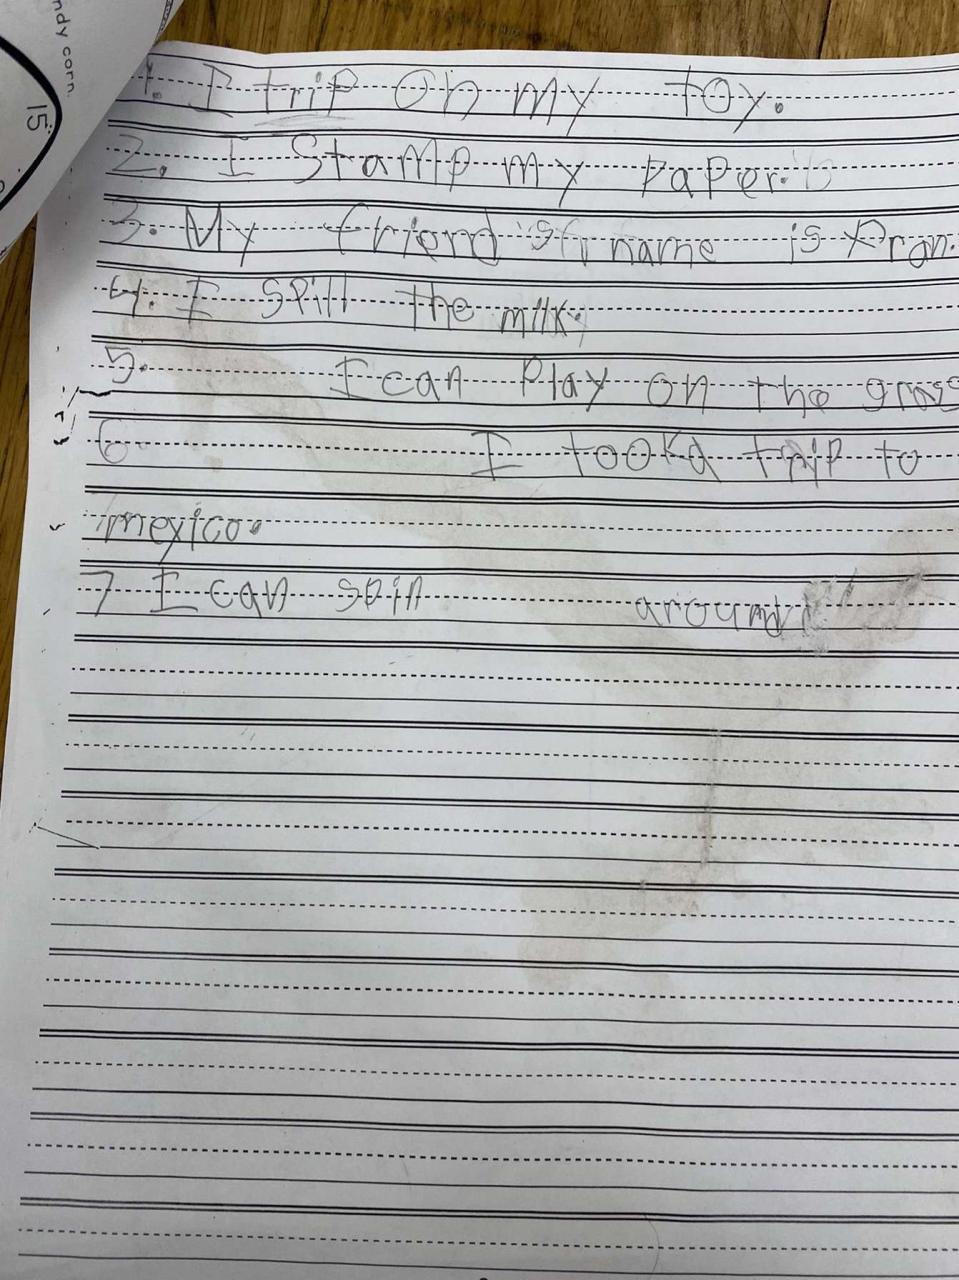 ndy corn.
15
1. I trip on my toy.
2. I stamp my paper.
3. My friend's name is
4. I spill the milk.
5. I can play on the grass
6. I took a trip to
mexico.
7 I can spin around